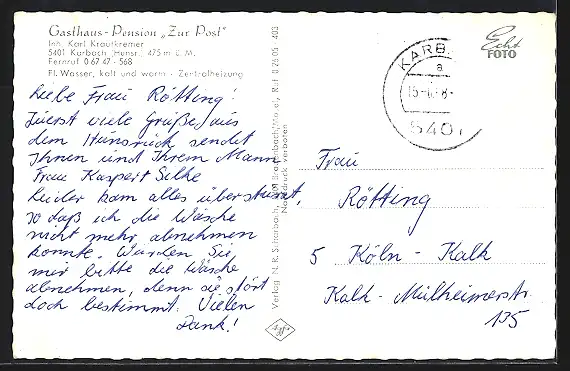 Gasthaus-Pension „Zur Post"
Inh. Karl Krautkremer
5401 Karbach (Hunsr.) 475 m ü. M.
Fernruf 0 67 47 - 568
Fl. Wasser, kalt und warm - Zentralheizung
Liebe Frau Rötting!
Zuerst viele Grüße aus
dem Hunsrück sendet
Ihnen und Ihrem Mann
Frau Kaspert Silke
Leider kam alles überstürzt,
so daß ich die Wäsche
nicht mehr abnehmen
konnte. Würden Sie
mir bitte die Wäsche
abnehmen, denn sie stört
doch bestimmt. Vielen
Dank!
Verlag N. R. Scharbach, Ruf 0 26 05 / 403
Nachdruck verboten
Agfa
KARB
a
15
540
Echt
FOTO
Frau
Rötting
5 Köln-Kalk
Kalk-Mülheimerstr
135